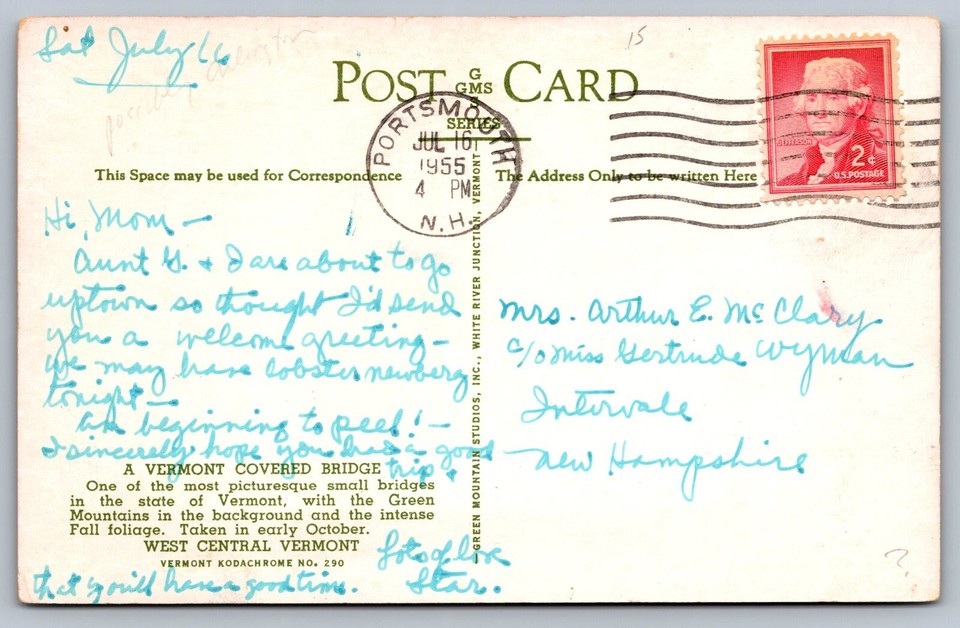 Sat July 16
15
possibly Arlington
?
POST CARD
G
GMS
S
SERIES
PORTSMOUTH
JUL 16
1955
4 PM
N.H.
JEFFERSON
2¢
U.S. POSTAGE
This Space may be used for Correspondence
The Address Only to be written Here
Hi, Mom -
Aunt G. & I are about to go
uptown so thought I'd send
you a welcome greeting -
we may have lobster newberg
tonight -
Am beginning to peel! -
I sincerely hope you had a good
trip &
that you'll have a good time.
Lots of love
Star.
A VERMONT COVERED BRIDGE
One of the most picturesque small bridges
in the state of Vermont, with the Green
Mountains in the background and the intense
Fall foliage. Taken in early October.
WEST CENTRAL VERMONT
VERMONT KODACHROME NO. 290
GREEN MOUNTAIN STUDIOS, INC., WHITE RIVER JUNCTION, VERMONT
Mrs. Arthur E. McClary
c/o Miss Gertrude Wyman
Intervale
New Hampshire
?